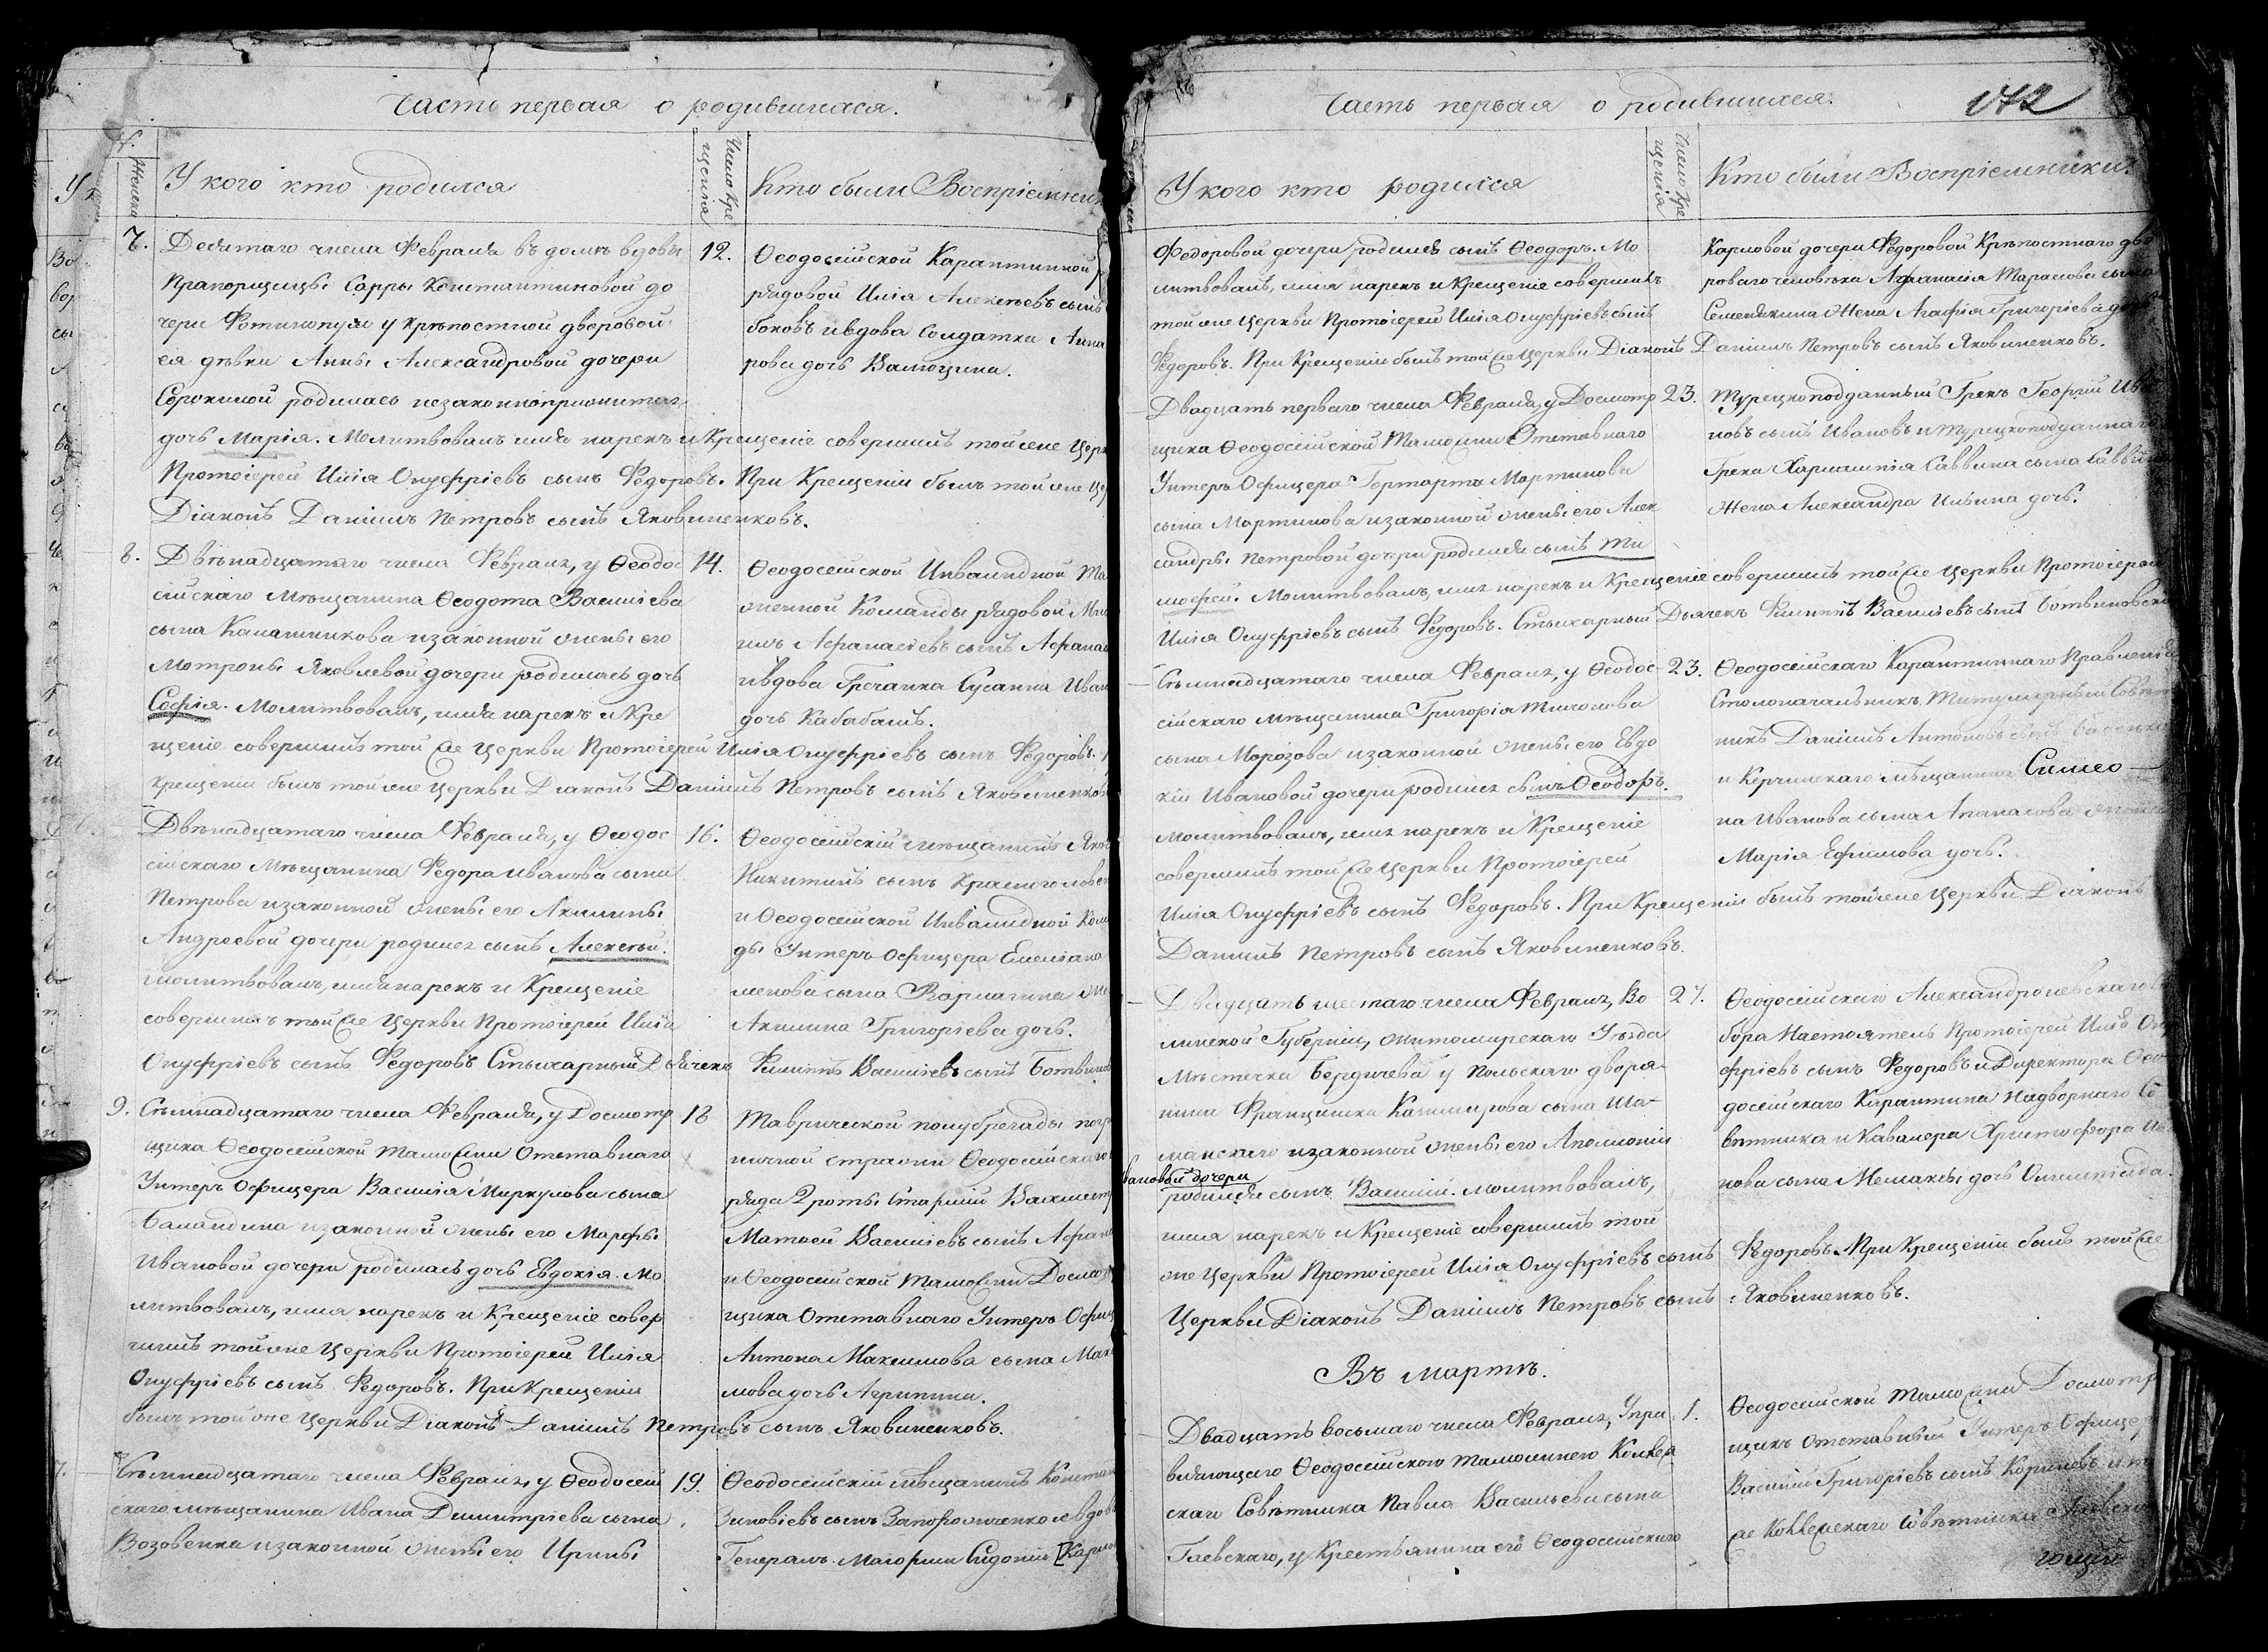 Часть первая о родившихся.
У кого кто родился
Число кре
щенія
Кто были Воспріемники
7.
Десятаго числа Февраля въ домѣ вдовы
Прапорщицы Сарры Константиновой до
чери Фотинопули у крѣпостной дворовой
ея дѣвки Анны Александровой дочери
Сорокиной родилась незаконноприжитая
дочь Марія. Молитвовалъ имя нарекъ и Крещеніе совершилъ той же Церк
Протоіерей Илія Онуфріевъ сынъ Федоровъ. При Крещеніи былъ той же Це
Діаконъ Даніилъ Петровъ сынъ Яковиненковъ.
12.
Ѳеодосійской Карантинной
рядовой Илія Алексѣевъ сынъ
боковъ и вдова Солдатка Анна
рова дочь Валюцина.
8.
Двѣнадцатаго числа Февраля, у Ѳеодос
сійскаго Мѣщанина Ѳеодота Васильева
сына Калашникова и законной жены его
Мотроны Яковлевой дочери родилась дочь
Софія. Молитвовалъ, имя нарекъ и Кре
щеніе совершилъ той же Церкви Протоіерей Илія Онуфріевъ сынъ Федоровъ.
крещеніи былъ той же Церкви Діаконъ Даніилъ Петровъ сынъ Яковиненковъ
14.
Ѳеодосійской Инвалидной
женной Команды рядовой
илъ Афанасіевъ сынъ Афанас
и вдова Гречанка Сусанна Иван
дочь Кабабашъ.
Двѣнадцатаго числа Февраля, у Ѳеодос
сійскаго Мѣщанина Федора Иванова сына
Петрова и законной жены его Акилины
Андреевой дочери родился сынъ Алексѣй.
молитвовалъ, имя нарекъ и Крещеніе
совершилъ той же Церкви Протоіерей Илія
Онуфріевъ сынъ Федоровъ Стихарный Дьячекъ Филиппъ Васильевъ сынъ Ботвинов
16.
Ѳеодосійскій мѣщанинъ Яко
Никитинъ сынъ Красноголовен
и Ѳеодосійской Инвалидной Ком
ды Унтеръ-Офицера Емеліана
менова сына Варлагина
Акилина Григоріева дочь.
9.
Седмнадцатаго числа Февраля, у Досмотр
щика Ѳеодосійской Таможни Отставнаго
Унтеръ Офицера Василія Меркулова сына
Баландина и законной жены его Марфы
Ивановой дочери родилась дочь Евдокія. Мо
литвовалъ, имя нарекъ и Крещеніе совер
шилъ той же Церкви Протоіерей Илія
Онуфріевъ сынъ Федоровъ. При Крещеніи
былъ той же Церкви Діаконъ Даніилъ Петровъ сынъ Яковиненковъ.
18
Таврической полубрегады погр
ничной стражи Ѳеодосійскаго
ряда 2 роты Старшій Вахмистр
Матвей Васильевъ сынъ Афана
и Ѳеодосійской Таможни Досмотр
щика Отставнаго Унтеръ Офиц
Антона Максимова сына Мак
мова дочь Агрипина.
Седмнадцатаго числа Февраля, у Ѳеодосій
скаго мѣщанина Ивана Димитріева сына
Возовенка и законной жены его Ирины
19.
Ѳеодосійскій мѣщанинъ Констан
Зиновіевъ сынъ Запорожченко и вдов
Генералъ-Маіорши Сидоніи Карло
Часть первая о родившихся.
172
У кого кто родился
Число кре
щенія
Кто были Воспріемники.
Федоровой дочери родился сынъ Ѳеодоръ. Мо
литвовалъ, имя нарекъ и Крещеніе совершилъ
той же Церкви Протоіерей Илія Онуфріевъ сынъ
Федоровъ. При Крещеніи былъ той же Церкви Діаконъ Даніилъ Петровъ сынъ Яковиненковъ.
Карловой дочери Федоровой Крѣпостнаго дво
роваго человѣка Афанасія Тарасова сына
Семенякина Жена Агафія Григоріева доч
Двадцать перваго числа Февраля, у Досмотр
щика Ѳеодосійской Таможни Отставнаго
Унтеръ Офицера Гертарта Мартинова
сына Мартинова и законной жены его Алек
сандры Петровой дочери родился сынъ Ти
мофей. Молитвовалъ, имя нарекъ и Крещеніе совершилъ той же Церкви Протоіерей
Илія Онуфріевъ сынъ Федоровъ. Стихарный Дьячекъ Филиппъ Васильевъ сынъ Ботвиновск
23.
Турецкоподданный Грекъ Георгій Ива
новъ сынъ Ивановъ и Турецкоподданнаго
Грека Харлампія Саввина сына Саввин
Жена Александра Ильина дочь.
Седмнадцатаго числа Февраля, у Ѳеодос-
сійскаго мѣщанина Григорія Тихонова
сына Морозова и законной жены его Евдо
кіи Ивановой дочери родился сынъ Ѳеодоръ.
Молитвовалъ, имя нарекъ и Крещеніе
совершилъ той же Церкви Протоіерей
Илія Онуфріевъ сынъ Федоровъ. При Крещеніи былъ той же Церкви Діаконъ
Даніилъ Петровъ сынъ Яковиненковъ.
23.
Ѳеодосійскаго Карантиннаго Правленія
Столоначальникъ Титулярный Совѣт
никъ Даніилъ Антоновъ сынъ Бабенко
и Керчинскаго мѣщанина Симео
на Иванова сына Апанасова жена
Марія Ефимова дочь.
Двадцать шестаго числа Февраля, Во
линской Губерніи, Житомирскаго Уѣзда
Мѣстечка Бердичева у Польскаго дворя-
нина Францишка Казимирова сына Ша-
манскаго и законной жены его Аполоніи
вановой дочери
родился сынъ Василій. молитвовалъ,
имя нарекъ и Крещеніе совершилъ той
же Церкви Протоіерей Илія Онуфріевъ сынъ Федоровъ. При Крещеніи былъ той же
Церкви Діаконъ Даніилъ Петровъ сынъ Яковиненковъ.
27.
Ѳеодосійскаго Александроневскаго Со
бора Настоятель Протоіерей Илія Ону
фріевъ сынъ Федоровъ и Директора Ѳео
досійскаго Карантина Надворнаго Со
вѣтника и Кавалера Христофора Ива
нова сына Мелаксы дочь Олимпіада.
Въ Мартѣ.
Двадцать восьмаго числа Февраля, Упра
вляющаго Ѳеодосійскою таможнею Коллеж
скаго Совѣтника Павла Васильева сына
Гаевскаго, у Крестьянина его Ѳеодосійскаго
1.
Ѳеодосійской Таможни Досмотр
щикъ Отставный Унтеръ Офицер
Василій Григоріевъ сынъ Коринев
Коллежскаго Совѣтника